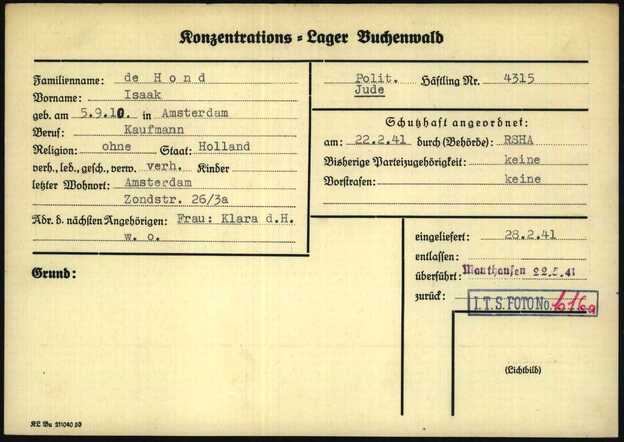 Konzentrations = Lager Buchenwald
Familienname: de Hond
Vorname: Isaak
geb. am 5.9.10. in Amsterdam
Beruf: Kaufmann
Religion: ohne Staat: Holland
verh., led., gesch., verw. verh. Kinder
letzter Wohnort: Amsterdam
Zondstr. 26/3a
Adr. d. nächsten Angehörigen: Frau: Klara d.H.
w. o.
Grund:
Polit. Häftling Nr. 4315
Jude
Schutzhaft angeordnet:
am: 22.2.41 durch (Behörde): RSHA
Bisherige Parteizugehörigkeit: keine
Vorstrafen: keine
eingeliefert: 28.2.41
entlassen:
überführt: Mauthausen 22.5.41
zurück:
I.T.S. FOTO No. 616a
(Lichtbild)